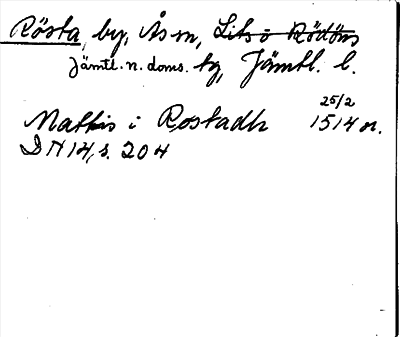 Rösta, by, Ås sn, Lits o Rödöns
Jämtl. n. doms. tg, Jämtl. l.
25/2
Mattis i Rostadh 1514 or.
DN 14, s. 204